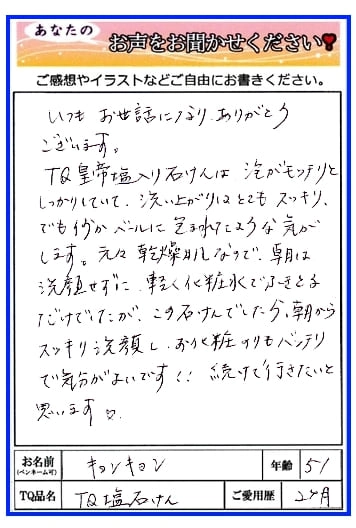 あなたの
お声をお聞かせください❣
ご感想やイラストなどご自由にお書きください。
いつもお世話になり、ありがとう
ございます。
TQ皇帝塩入り石けんは 泡がモッテリと
しっかりしていて、洗い上がりはとてもスッキリ、
でも何かベールに包まれたような気が
します。元々乾燥肌なので、朝は
洗顔せずに、軽く化粧水でふきとる
だけでしたが、この石けんでしたら、朝から
スッキリ洗顔し、お化粧のりもバッテリ
で気分がよいです!! 続けて行きたいと
思います♡。
お名前
(ペンネーム可)
キョンキョン
年齢
51
TQ品名
TQ塩石けん
ご愛用歴
2ヶ月